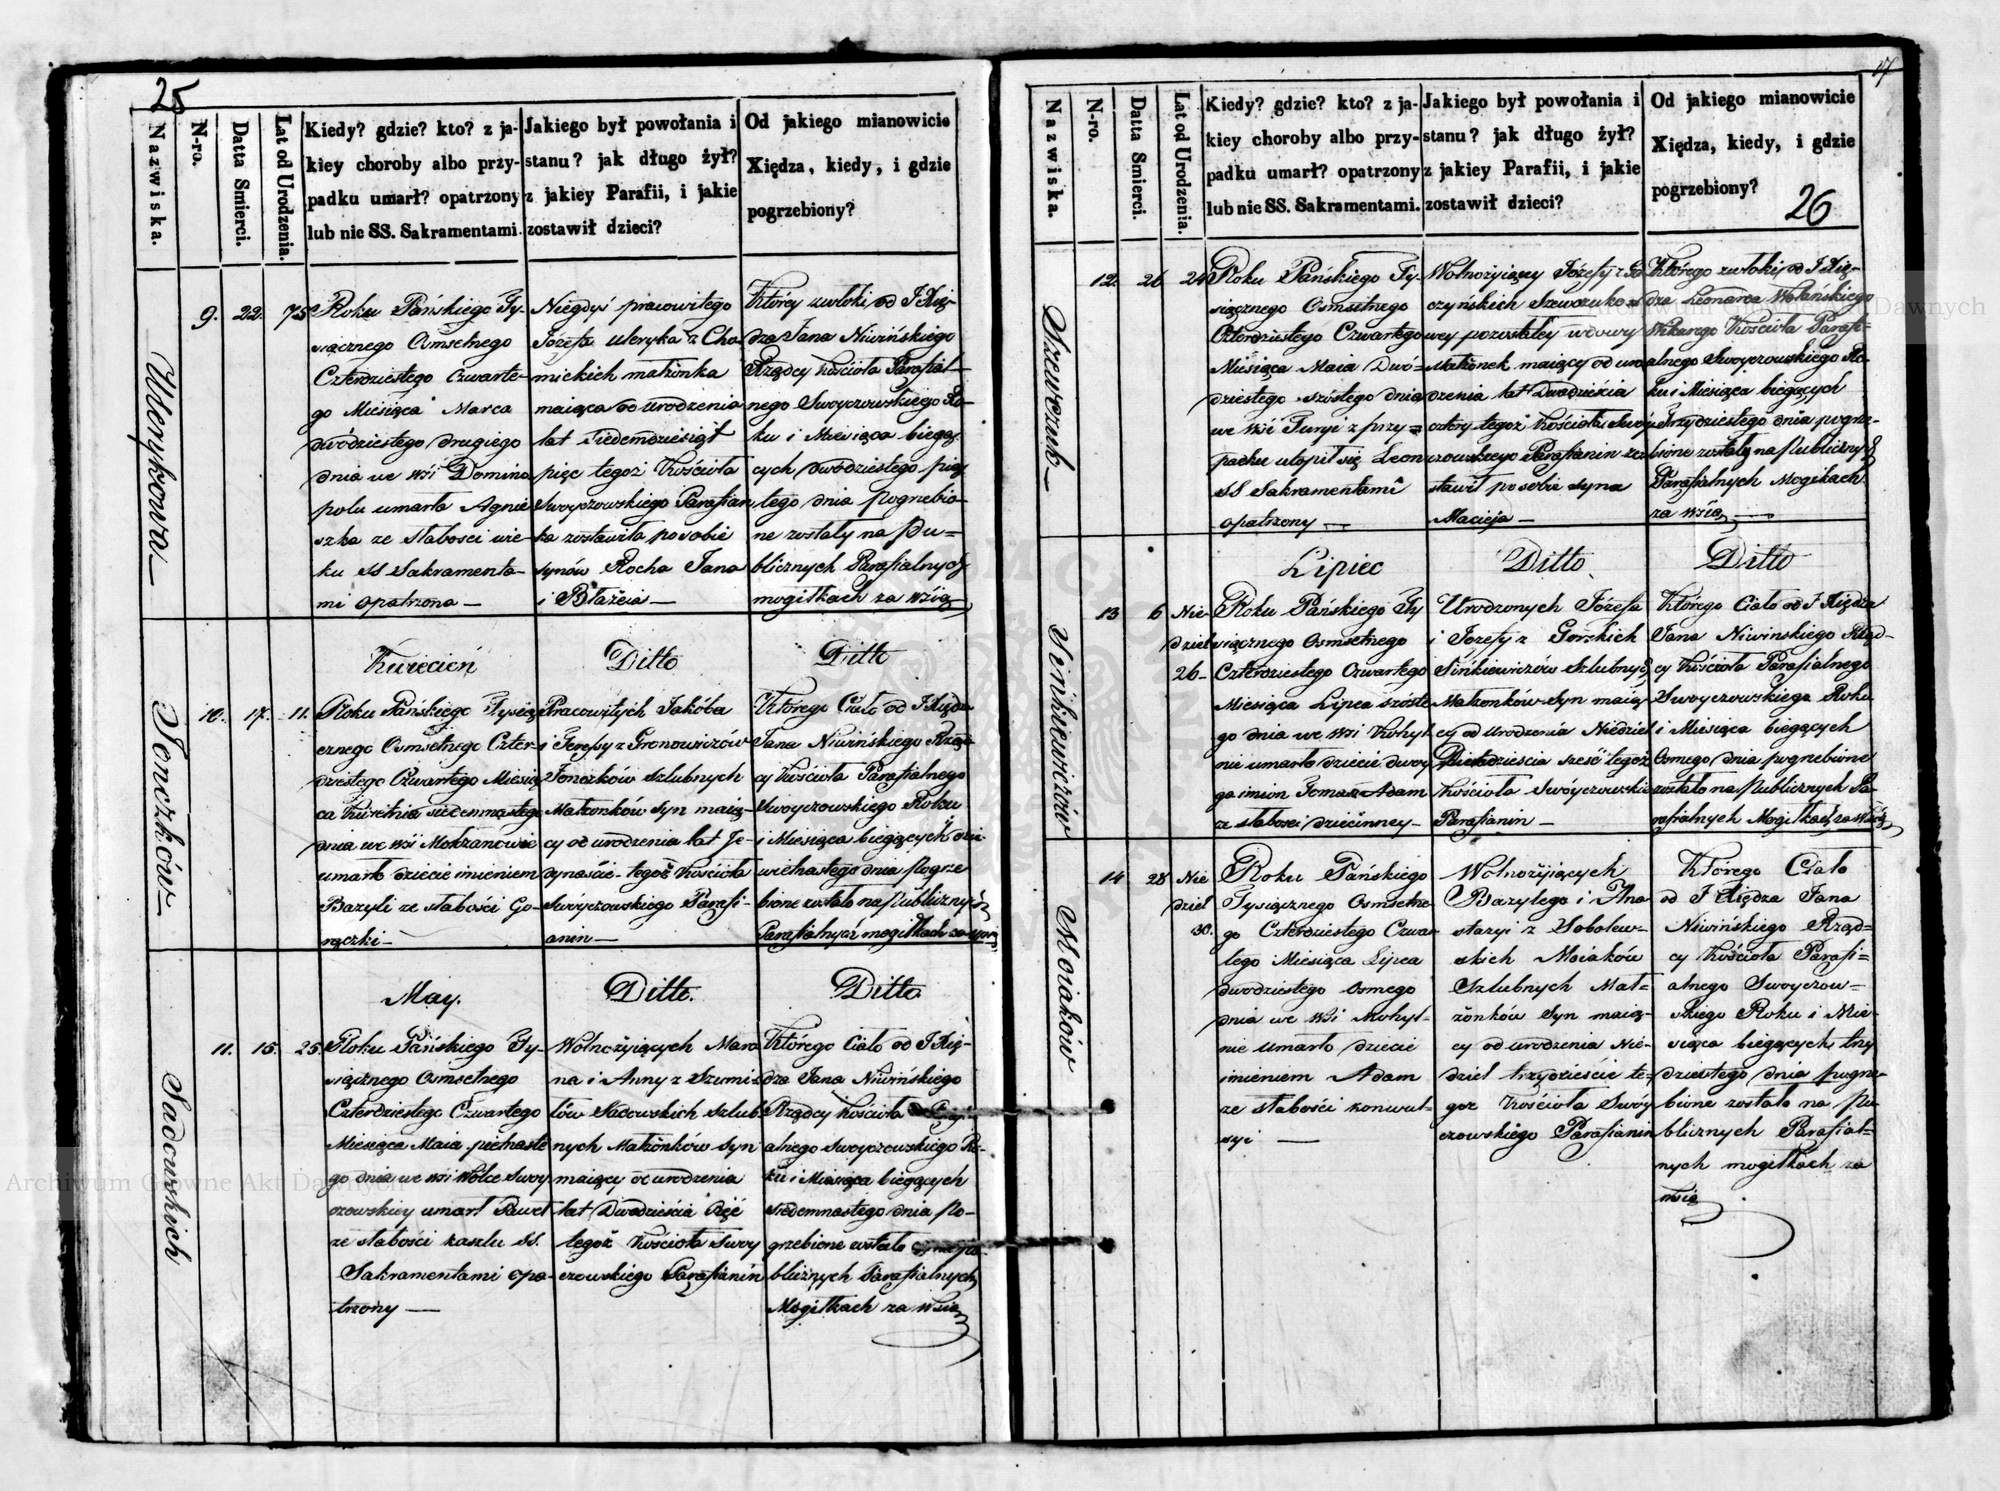 25
Nazwiska.
N-ro.
Datta Smierci.
Lat od Urodzenia.
Kiedy? gdzie? kto? z ja-
kiey choroby albo przy-
padku umarł? opatrzony
lub nie SS. Sakramentami.
Jakiego był powołania i
stanu? jak długo żył?
z jakiey Parafii, i jakie
zostawił dzieci?
Od jakiego mianowicie
Xiędza, kiedy, i gdzie
pogrzebiony?
9. 22. 75
Roku Pańskiego Ty-
siącznego Osmsetnego
Czterdziestego Czwarte-
go Miesiąca Marca
dwódziestego drugiego
dnia we wsi Domino
polu umarła Agnie
szka ze słabosci wie-
ku SS Sakramenta-
mi opatrzona —
Niegdyś pracowitego
Józefa Uleryka z Cho
mickich małżonka
maiąca od urodzenia
lat siedemdziesiąt
pięc tegoż Kościoła
Swoyczowskiego Parafian
ka zostawiła po sobie
synów Rocha Jana
i Błażeia —
Którey zwłoki od J Xię-
dza Jana Niwińskiego
Rządcy Kościoła Parafial-
nego Swoyczowskiego Ro-
ku i Miesiąca bieżą-
cych dwódziestego pią
tego dnia pogrzebio-
ne zostały na Pu=
blicznych Parafialnych
mogiłkach za wsią
Kwiecień
Ditto
Ditto
10. 17. 11.
Roku Pańskiego Tysią
cznego Osmsetnego Czter-
dziestego Czwartego Miesią
ca Kwietnia siedemnastego
dnia we wsi Mokrzanowie
umarło dziecie imieniem
Bazyli ze słabości Go-
rączki —
Pracowitych Jakóba
i Teressy z Gronowiczów
Jonczków szlubnych
Małżonków syn maią-
cy od urodzenia lat Je-
dynaście tegoż Kościoła
Swoyczowskiego Parafi-
anin —
Którego Ciało od J Xiędza
Jana Niwińskiego Rządz
cy Kościoła Parafialnego
Swoyczowskiego Roku
i Miesiąca bieżących dzie
wietnastego dnia Pogrze
bione zostało na Publicznych
Parafialnych mogiłkach za wsią
May.
Ditto.
Ditto
11. 15. 25.
Roku Pańskiego Ty-
siącznego Osmsetnego
Czterdziestego Czwartego
Miesiąca Maia pietnaste
go dnia we wsi Wolce Swoy
czowskiey umarł Paweł
ze słabości kaszlu SS.
Sakramentami opa-
trzony —
Wolnożyiących Marci
na i Anny z
łów Sadowskich szlub-
nych Małżonków syn
maiący od urodzenia
lat Dwadzieścia Pięć
tegoż Kościoła Swoy
czowskiego Parafianin
Którego Ciało od J Xię-
dza Jana Niwińskiego
Rządcy Kościoła Parafi
alnego Swoyczowskiego Ro-
ku i Miesiąca bieżących
siedemnastego dnia Po-
grzebione zostało na pu-
blicznych Parafialnych
Mogiłkach za wsią
Ulerykowa —
Jonczków —
Sadowskich
17
26
Nazwiska.
N-ro.
Datta Smierci.
Lat od Urodzenia.
Kiedy? gdzie? kto? z ja-
kiey choroby albo przy-
padku umarł? opatrzony
lub nie SS. Sakramentami.
Jakiego był powołania i
stanu? jak długo żył?
z jakiey Parafii, i jakie
zostawił dzieci?
Od jakiego mianowicie
Xiędza, kiedy, i gdzie
pogrzebiony?
12. 26 24
Roku Pańskiego Ty-
siącznego Osmsetnego
Czterdziestego Czwartego
Miesiąca Maia Dwó-
dziestego szóstego dnia
we wsi Turyi z przy=
padku utopił się Leon
SS Sakramentami
opatrzony —
Wolnożyiący Józefy z Go
czyńskich Szewczuko=
wey pozostałey wdowy
Małżonek maiący od uro
dzenia lat Dwadzieścia
cztery tegoż Kościoła Swoy
czowskiego Parafianin zo
stawił po sobie syna
Macieja —
Którego zwłoki od J Xię-
dza Leonarda Wolańskiego
Wikarego Kościoła Parafi-
alnego Swoyczowskiego Ro-
ku i Miesiąca bieżących
Trzydziestego dnia pogrze-
bione zostały na Publicznych
Parafialnych Mogiłkach
za wsią —
Lipiec
Ditto
Ditto
13 6 Nie-
dziel
26-
Roku Pańskiego Ty
siącznego Osmsetnego
Czterdziestego Czwartego
Miesiąca Lipca szóste
go dnia we wsi Kohyl
nie umarło dziecie dwoy
ga imion Tomasz Adam
ze słabosci dziecinney —
Urodzonych Józefa
i Józefy z Gorskich
Sińkiewiczów Szlubnych
Małżonków syn maią
cy od Urodzenia Niedziel
Dwadzieścia sześć tegoż
Kościoła Swóyczowski
Parafianin —
Którego Ciało od J Xiędza
Jana Niwinskiego Rząd-
cy Kościoła Parafialnego
Swoyczowskiego Roku
i Miesiąca bieżących
Osmego dnia pogrzebione
zostało na Publicznych Pa-
rafialnych Mogiłkach za wsią
14 28 Nie
dziel
30.
Roku Pańskiego
Tysiącznego Osmsetne
go Czterdziestego Czwar
tego Miesiąca Lipca
dwodziestego Osmego
dnia we wsi Mohyl-
nie umarło dziecie
imieniem Adam
ze słabości konwul-
syi —
Wolnożyiących
Bazylego i Ana
stazyi z Sobolew-
skich Moiaków
Szlubnych Mał-
żonków syn maią-
cy od urodzenia Nie-
dziel trzydzieście te-
goż Kościoła Swóy
czowskiego Parafianin
Którego Ciało
od J Xiędza Jana
Niwińskiego Rząd=
cy Kościoła Parafi=
alnego Swoyczow=
skiego Roku i Mie-
siąca bieżących trzy
dziestego dnia pogrze-
bione zostało na Pu-
blicznych Parafial=
nych mogiłkach za
wsią
Szewczuk —
Sińkiewiczów
Moiaków
Archiwum Główne Akt Dawnych
Archiwum Główne Akt Dawnych